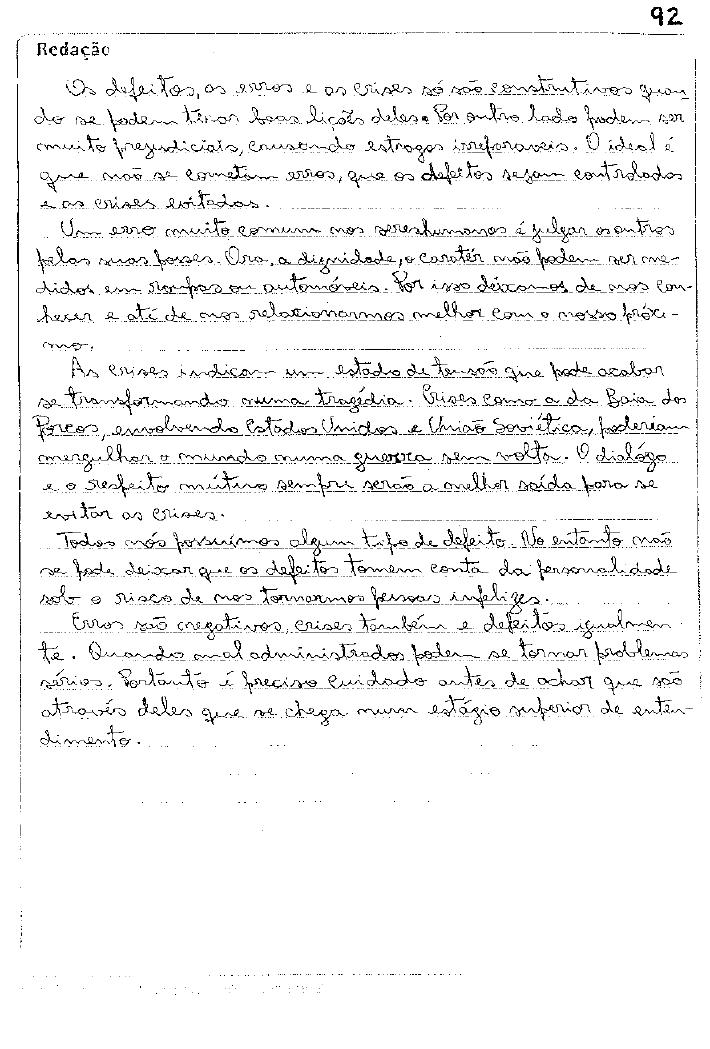 92
Redação
Os defeitos, os erros e as crises só são construtivos quan-
do se podem tirar boas lições deles. Por outro lado podem ser
muito prejudiciais, causando estragos irreparaveis. O ideal é
que não se cometam erros, que os defeitos sejam controlados
e as crises evitadas.
Um erro muito comum nos sereshumanos é julgar os outros
pelas suas posses. Ora, a dignidade, o caratér não podem ser me-
didos em roupas ou automóveis. Por isso deixamos de nos con-
hecer e até de nos relacionarmos melhor com o nosso próxi-
mo.
As crises indicam um estado de tensão que pode acabar
se transformando numa tragédia. Crises como a da Baia dos
Porcos, envolvendo Estados Unidos e União Soviética, poderiam
mergulhar o mundo numa guerra sem volta. O dialógo
e o respeito mútuo sempre serão a melhor saída para se
evitar as crises.
Todos nós possuímos algum tipo de defeito. No entanto não
se pode deixar que os defeitos tomem conta da personalidade
sob o risco de nos tornarmos pessoas infelizes.
Erros são negativos, crises também e defeitos igualmen-
te. Quando mal administrados podem se tornar problemas
sérios. Portanto é preciso cuidado antes de achar que são
através deles que se chega num estágio superior de enten-
dimento.